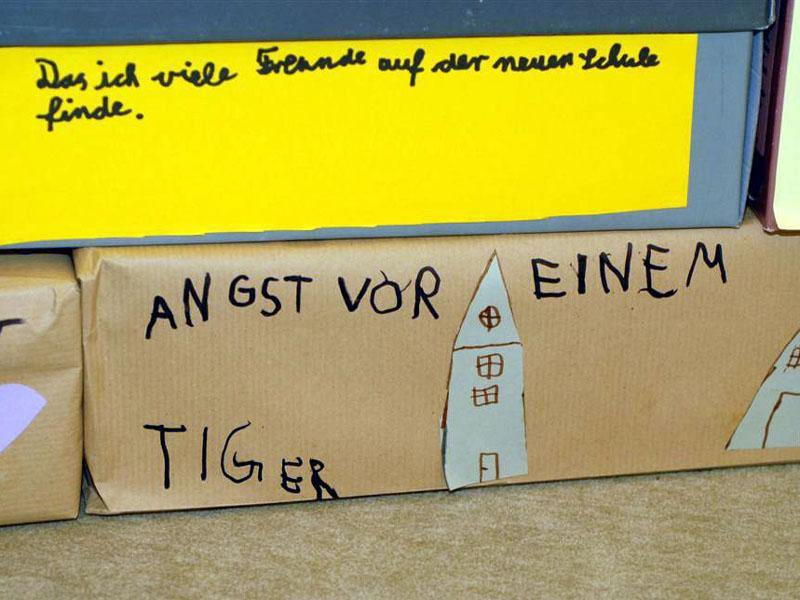 Das ich viele Freunde auf der neuen Schule
finde.
ANGST VOR EINEM
TIGER